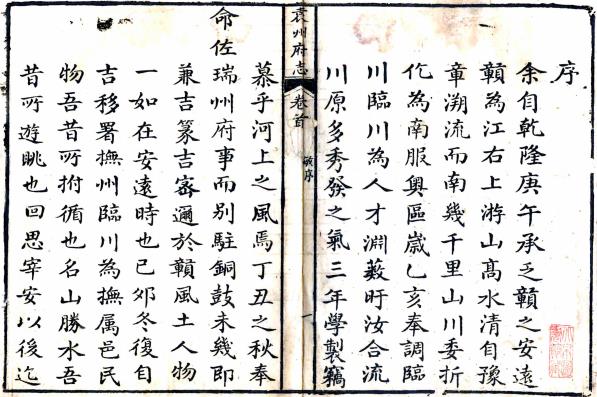 序
余自乾隆庚午承乏贛之安遠
贛為江右上游山高水清自豫
章溯流而南幾千里山川委折
化為南服奧區歲乙亥奉調臨
川臨川為人才淵藪盱汝合流
川原多秀發之氣三年學製竊
袁州府志
卷首
序
一
慕乎河上之風焉丁丑之秋奉
命佐瑞州府事而別駐銅鼓未幾即
兼吉篆吉密邇於贛風土人物
一如在安遠時也己夘冬復自
吉移署撫州臨川為撫属邑民
物吾昔所拊循也名山勝水吾
昔所遊眺也回思宰安以後迄